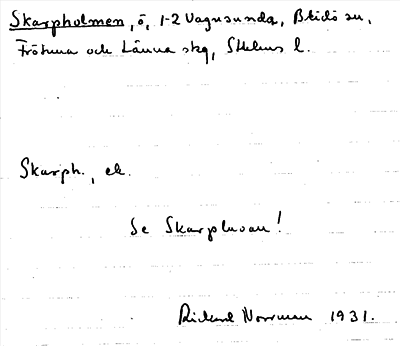 Skarpholmen, ö, 1-2 Vagnsunda, Blidö sn,
Frötuna och Länna skg, Sthlms l.
Skarph., ek.
Se Skarplavan!
Rickard Norrman 1931.